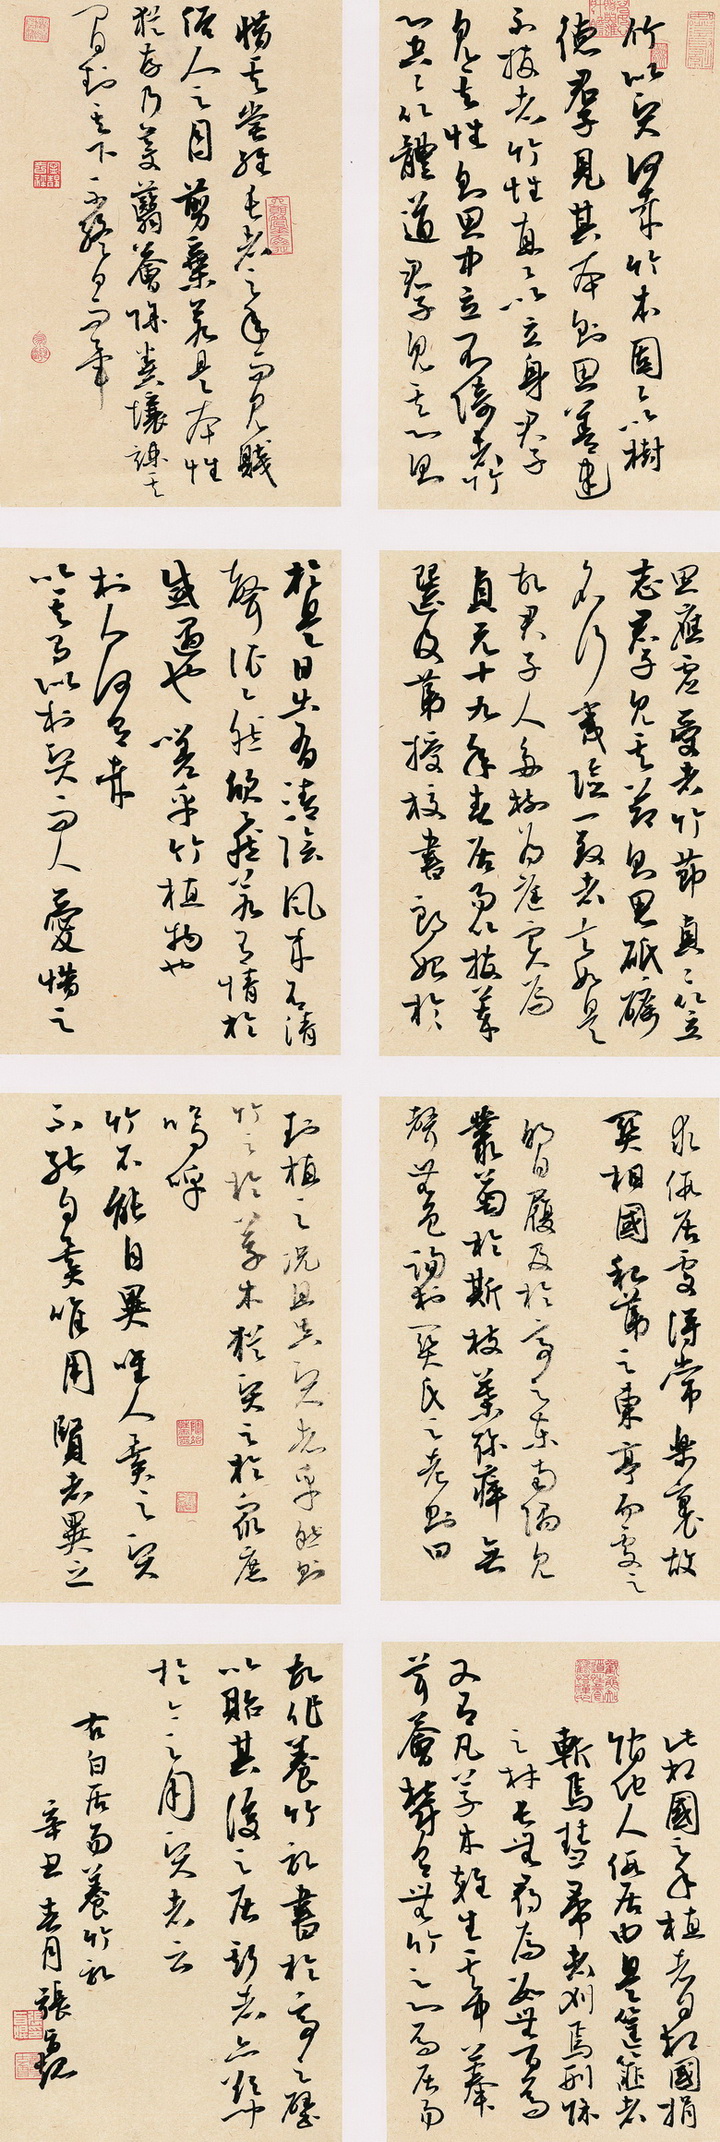 竹似賢何哉竹本固固以樹
德君子見其本則思善建
不拔者竹性直直以立身君子
見其性則思中立不倚者竹
心空空以體道君子見其心則
思應虛受者竹節貞貞以立
志君子見其節則思砥礪
名行夷險一致者夫如是
故君子人多樹為庭實焉
貞元十九年春居易以拔萃
選及第授校書郎始於
求假居處得常樂裏故
關相國私第之東亭而處之
明日履及於亭之東南隅見
叢菊於斯枝葉殄瘁無
聲無色詢於關氏之老則曰
此相國之手植者自相國捐
館他人假居由是筐篚者
斬焉彗帚者刈焉刑餘
之材長無尋焉數無百焉
又有凡草木雜生其中菶
茸薈鬱有無竹之心焉居易
惜其嘗經長者之手而見賤
俗人之目剪棄若是本性
猶存乃芟蘙薈除糞壤疏其
間封其下不終日而畢
於是日出有清陰風來有清
聲依依然欣欣然若有情於
感遇也嗟乎竹植物也
於人何有哉
以其有似於賢而人愛惜之
封植之況其真賢者乎然則
竹之於草木猶賢之於衆庶
嗚呼
竹不能自異唯人異之賢
不能自異唯用賢者異之
故作養竹記書於亭之壁
以貽其後之居斯者亦欲以聞
於今之用賢者云
右白居易養竹記
辛丑春月張